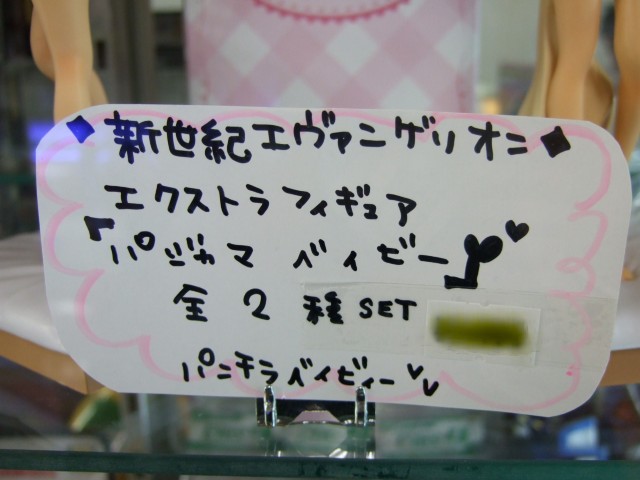 ◆新世紀エヴァンゲリオン◆
エクストラフィギュア
『パジャマ ベイビー』♥
全2種SET
パンチラベイビィー♥♥